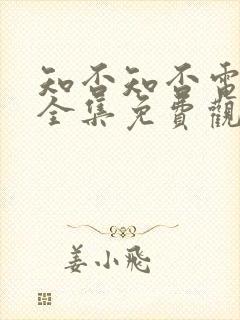 知否知否電
全集免費觀
姜小飛